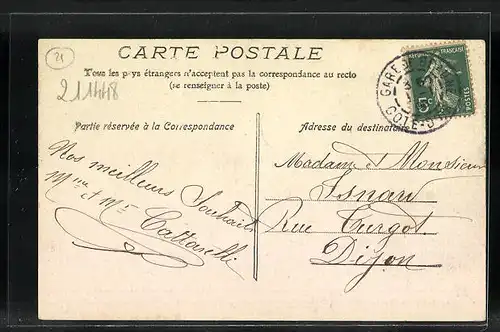 21
211448
CARTE POSTALE
Tous les pays étrangers n'acceptent pas la correspondance au recto
(se renseigner à la poste)
Partie réservée à la Correspondance
Nos meilleurs Souhaits
Mme et Mr
Adresse du destinataire
Madame & Monsieur
Isnau
Rue Turgot
Dijon
FRANÇAISE
POSTES
5c
GARE
CÔTE-D